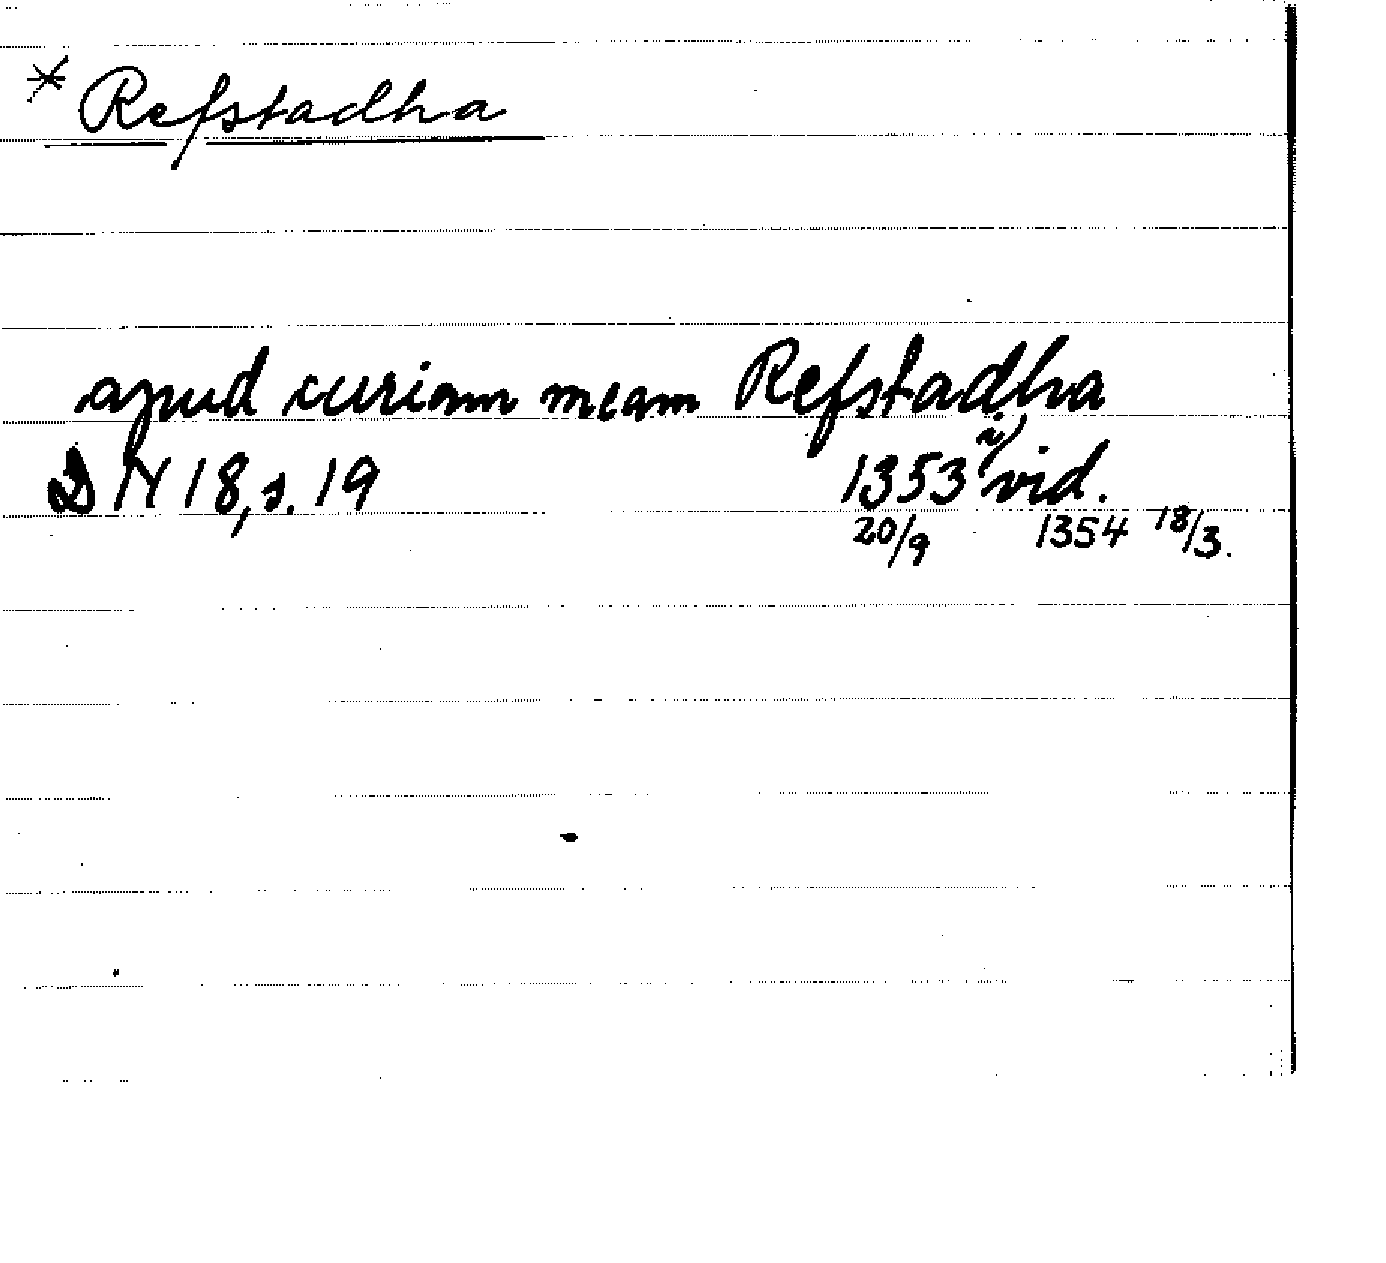 * Refstadha
apud curiam meam Refstadha
DN 18, s. 19 1353 i) vid.
20/9 1354 18/3.